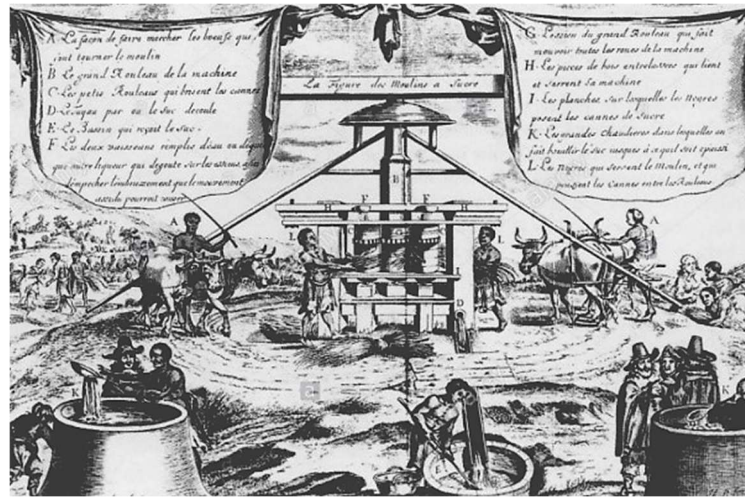 A La façon de faire marcher les bœufs qui
font tourner le moulin
B Le grand Rouleau de la machine
C Les petis Rouleaux qui brisent les cannes
D Le tuyau par ou le suc decoule
E Le Bassin qui reçoit le suc.
F Les deux vaisseaux remplis
que autre liqueur qui degoute sur les
empecher que le mouvement
pourroit
La Figure des Moulins a Sucre
G L'essieu du grand Rouleau qui fait
mouvoir toutes les roues de la machine
H. Les pieces de bois entrelassees qui lient
et serrent la machine
I. Les planches sur lesquelles les Negres
posent les cannes de sucre
K. Les grandes chaudieres dans lesquelles on
fait bouillir le suc jusques à ce qu'il soit epaissi
L Les Negres qui servent le Moulin, et qui
poussent les cannes entre les Rouleaux
A
H
F
B
F
H
L
A
D
K